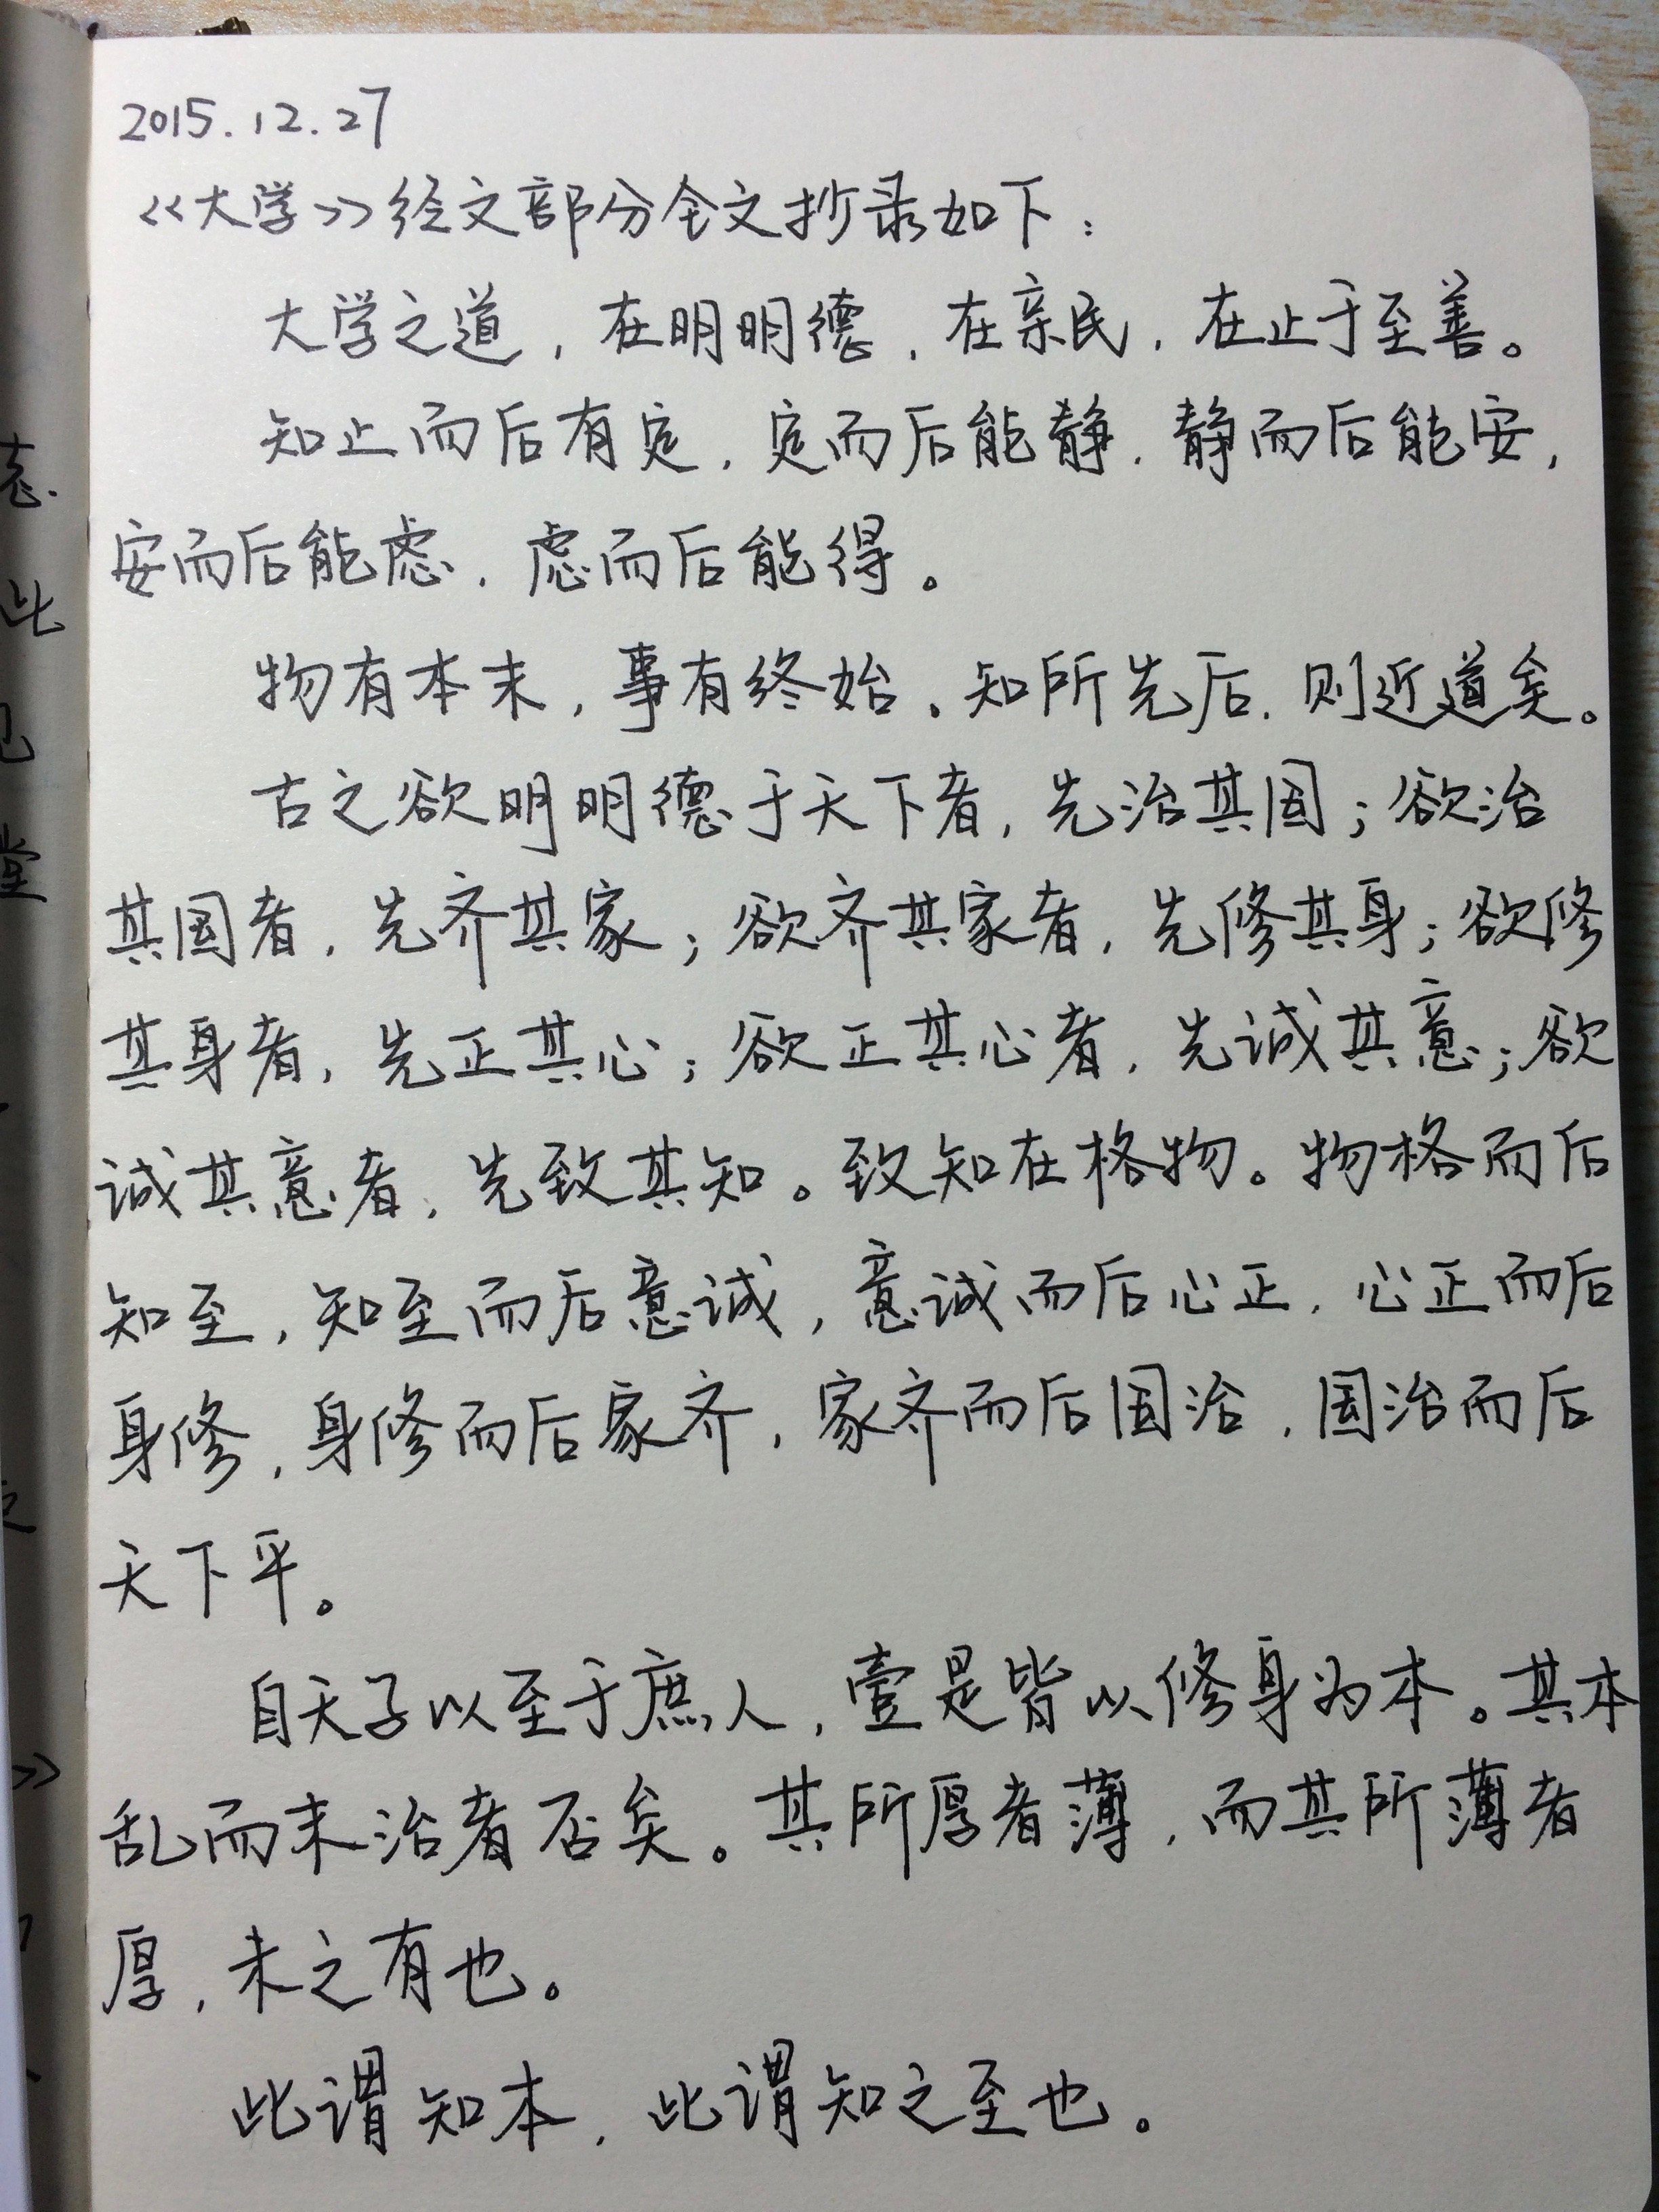 2015.12.27
《大学》经文部分全文抄录如下：
大学之道，在明明德，在亲民，在止于至善。
知止而后有定，定而后能静，静而后能安，
安而后能虑，虑而后能得。
物有本末，事有终始。知所先后，则近道矣。
古之欲明明德于天下者，先治其国；欲治
其国者，先齐其家；欲齐其家者，先修其身；欲修
其身者，先正其心；欲正其心者，先诚其意；欲
诚其意者，先致其知。致知在格物。物格而后
知至，知至而后意诚，意诚而后心正，心正而后
身修，身修而后家齐，家齐而后国治，国治而后
天下平。
自天子以至于庶人，壹是皆以修身为本。其本
乱而末治者否矣。其所厚者薄，而其所薄者
厚，未之有也。
此谓知本，此谓知之至也。